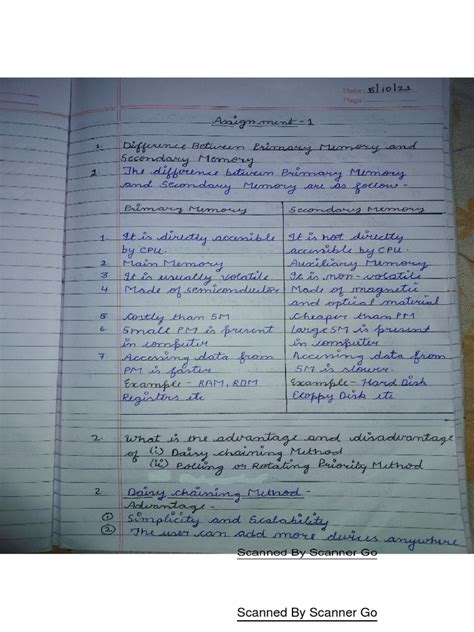 Date: 5/10/21
Page:
Assignment-1
1. Difference Between Primary Memory and
Secondary Memory
1. The difference between Primary Memory
and Secondary Memory are as follow-
Primary Memory Secondary Memory
1. It is directly accessible It is not directly
by CPU. accessible by CPU.
2 Main Memory Auxiliary Memory
3 It is usually volatile It is non-volatile
4 Made of semiconductor Made of magnetic
and optical material
5 Costly than SM Cheaper than PM
6 Small PM is present large SM is present
in computer in computer
7 Accessing data from Accessing data from
PM is faster SM is slower.
Example- RAM, ROM Example- Hard Disk
Registers etc Floppy Disk etc
2. What is the advantage and disadvantage
of (i) Daisy chaining Method
(ii) Polling or Rotating Priority Method
2 Daisy chaining Method-
Advantage-
① Simplicity and Scalability
② The user can add more devices anywhere
Scanned By Scanner Go
Scanned By Scanner Go